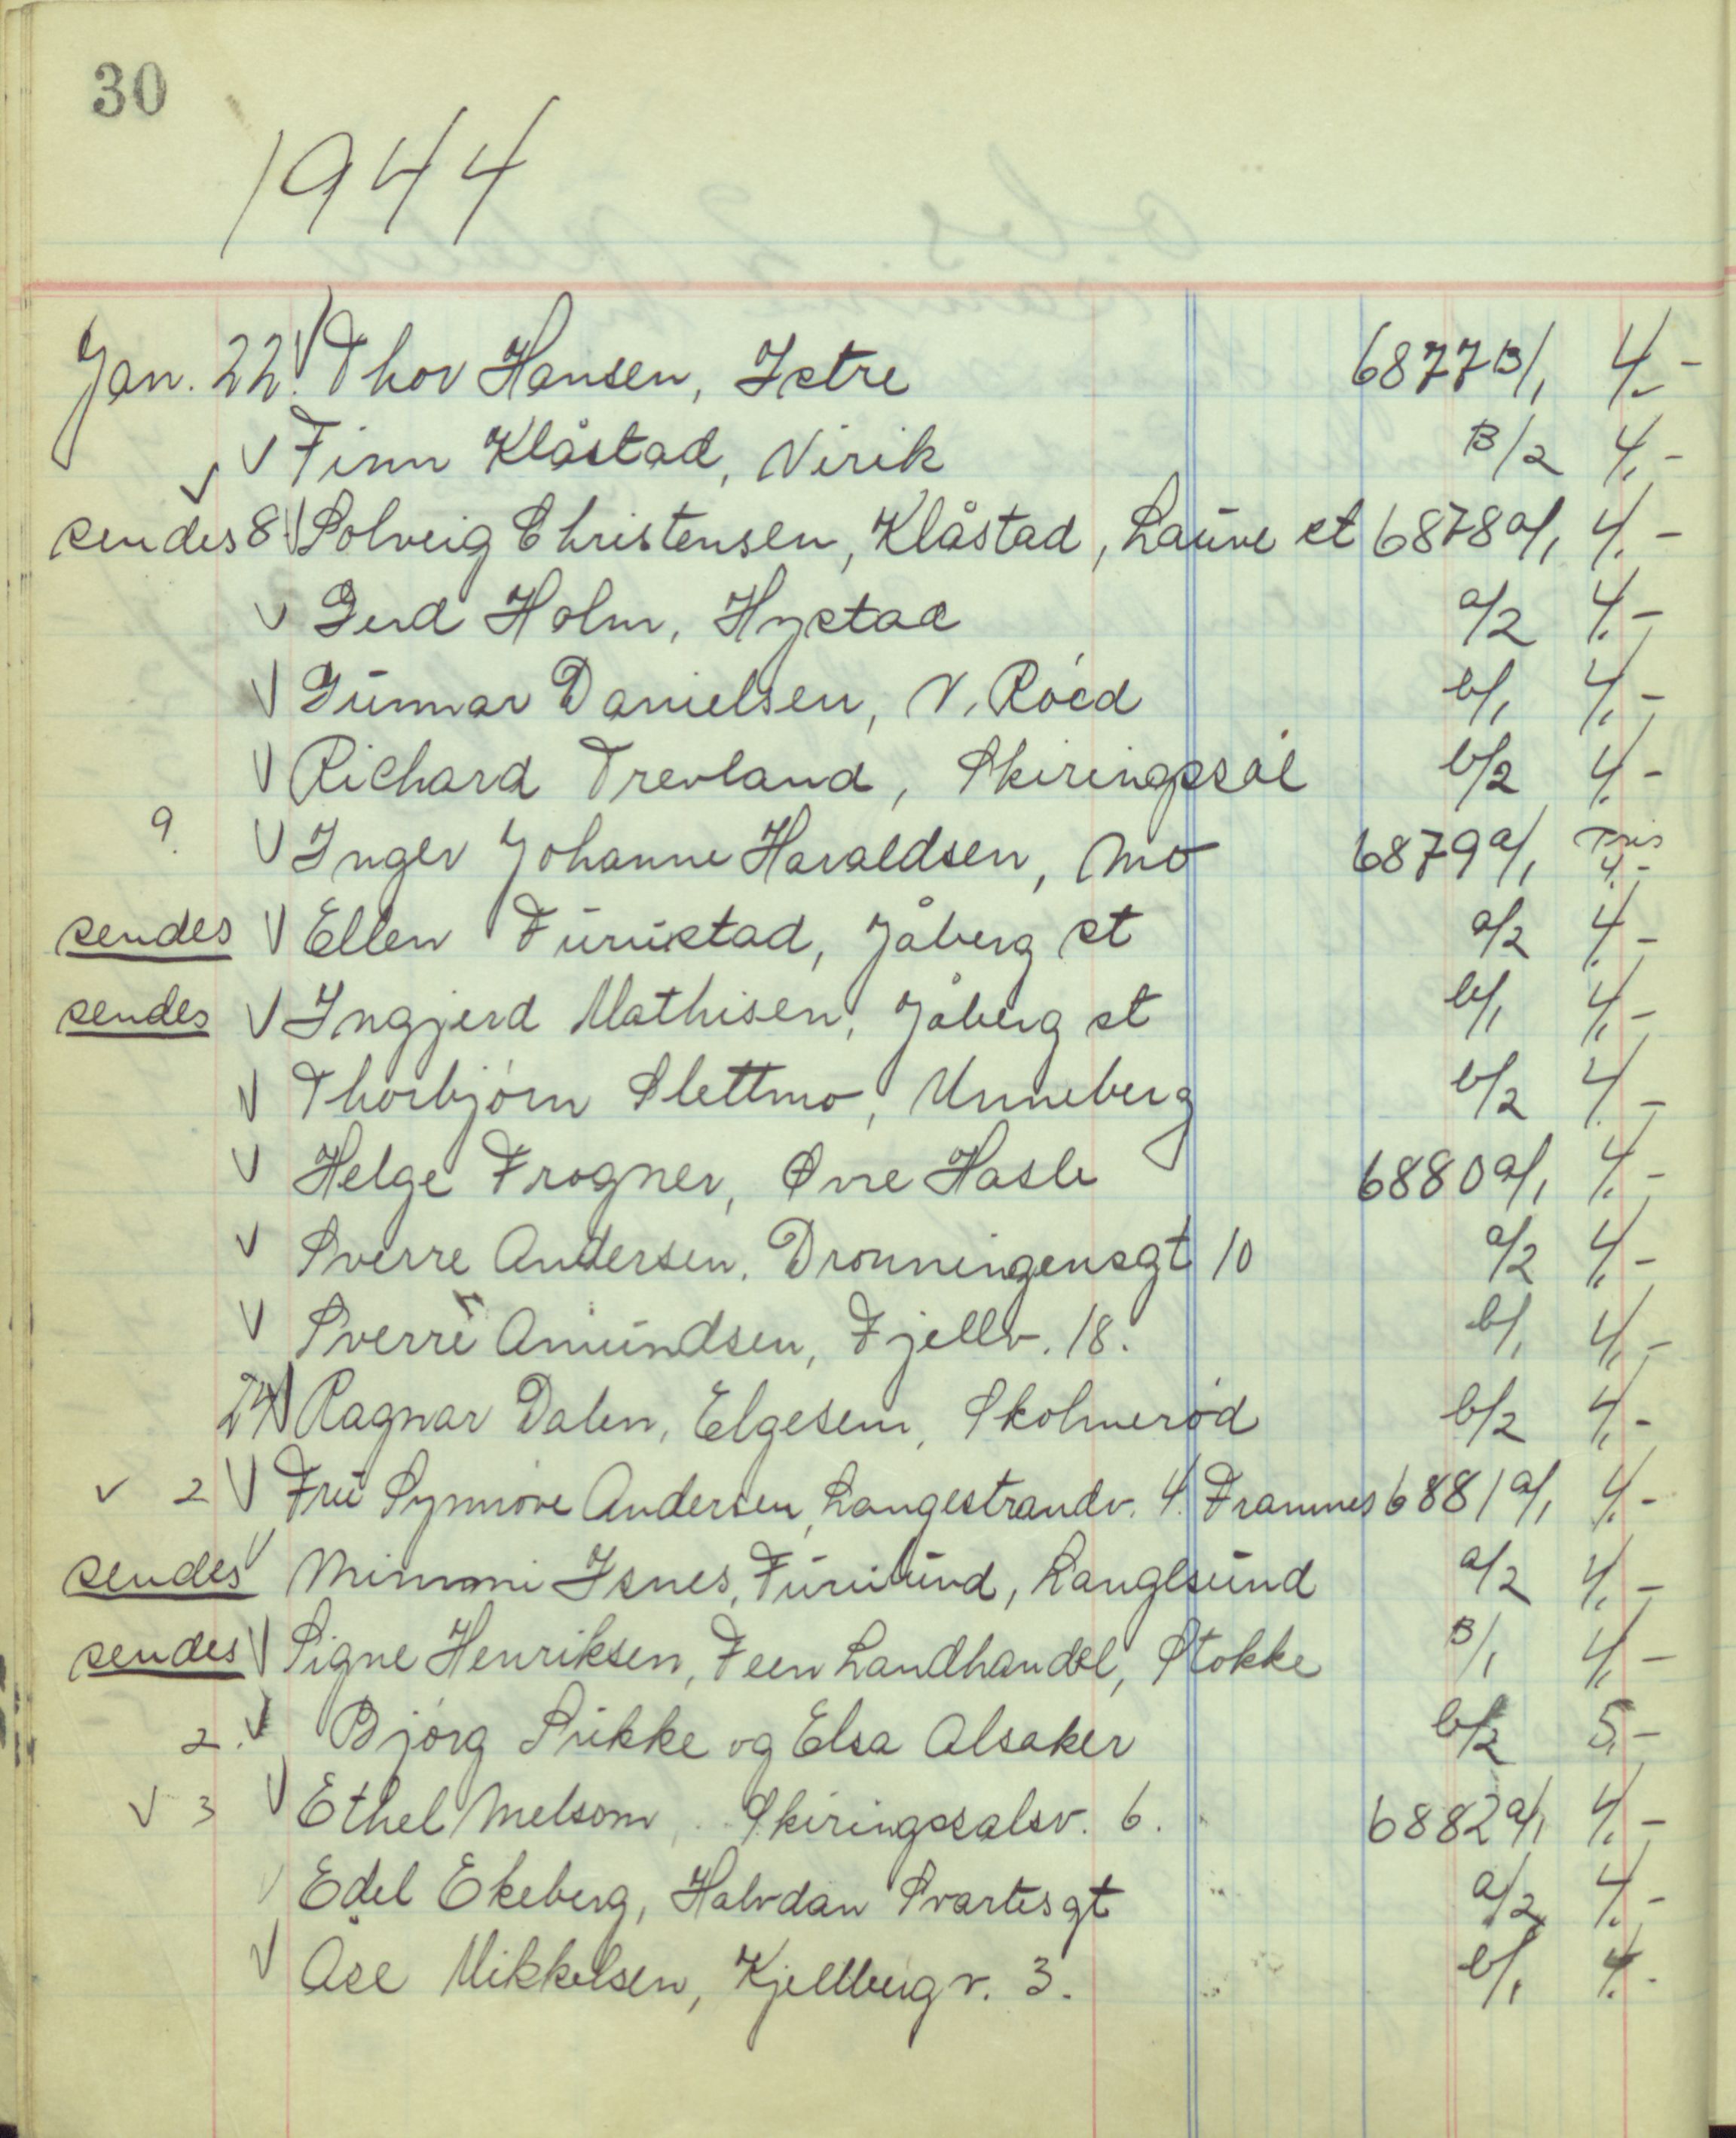 30
1944
Jan. 22. V Thor Hansen, Istre 6877 B/1 4.-
V Finn Klåstad, Virik B/2 4.-
V sendes 8. V Solveig Christensen, Klåstad, Lauve st 6878 a/1 4.-
V Gerd Holm, Hystad a/2 4.-
V Gunnar Danielsen, N. Röed b/1 4.-
V Richard Trevland, Skiringssal b/2 4.-
9. V Inger Johanne Haraldsen, Mo 6879 a/1 Pris 4.-
sendes V Ellen Furustad, Jåberg st a/2 4.-
sendes V Ingjerd Mathisen, Jåberg st b/1 4.-
V Thorbjörn Slettmo, Unneberg b/2 4.-
V Helge Frogner, Øvre Hasle 6880 a/1 4.-
V Sverre Andersen, Dronningensgt 10 a/2 4.-
V Sverre Amundsen, Fjellv. 18. b/1 4.-
24 V Ragnar Dalen, Elgesem, Skolmeröd b/2 4.-
V 2 V Fru Synnöve Andersen, Langestrandv. 4. Framnes 6881 a/1 4.-
sendes V Mimmi Isnes, Furulund, Langesund a/2 4.-
sendes V Signe Henriksen, Feen Landhandel, Stokke B/1 4.-
2. V Björg Sukke og Elsa Alsaker b/2 5.-
V 3 V Ethel Melsom, Skiringssalsv. 6. 6882 a/1 4.-
V Edel Ekeberg, Halvdan Svartesgt a/2 4.-
V Åse Mikkelsen, Kjellbergv. 3. b/1 4.-